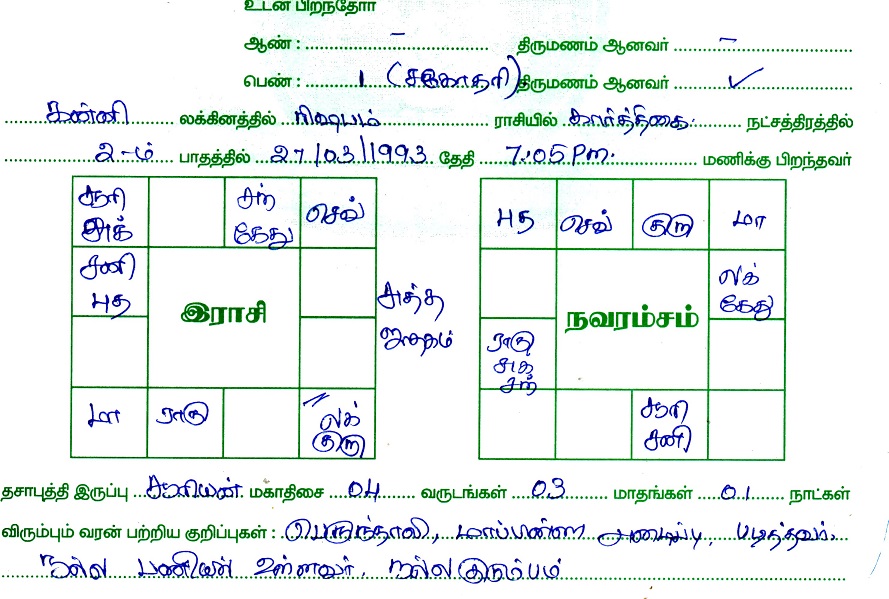 உடன் பிறந்தோர்
ஆண் : – திருமணம் ஆனவர் –
பெண் : 1 (சகோதரி) திருமணம் ஆனவர் ✓
கன்னி லக்கினத்தில் ரிஷபம் ராசியில் கார்த்திகை நட்சத்திரத்தில்
2-ம் பாதத்தில் 27/03/1993 தேதி 7:05 Pm. மணிக்கு பிறந்தவர்
சூரி சந் செவ் புத செவ் குரு மா
சுக் கேது
சனி லக்
புத கேது
இராசி சுத்த நவரம்சம்
ஜாதகம் ராகு
சுக்
சந்
மா ராகு லக் சூரி
குரு சனி
தசாபுத்தி இருப்பு சூரியன் மகாதிசை 04 வருடங்கள் 03 மாதங்கள் 01 நாட்கள்
விரும்பும் வரன் பற்றிய குறிப்புகள் : படித்தவர்.
நல்ல பணியில் உள்ளவர். நல்ல குடும்பம்